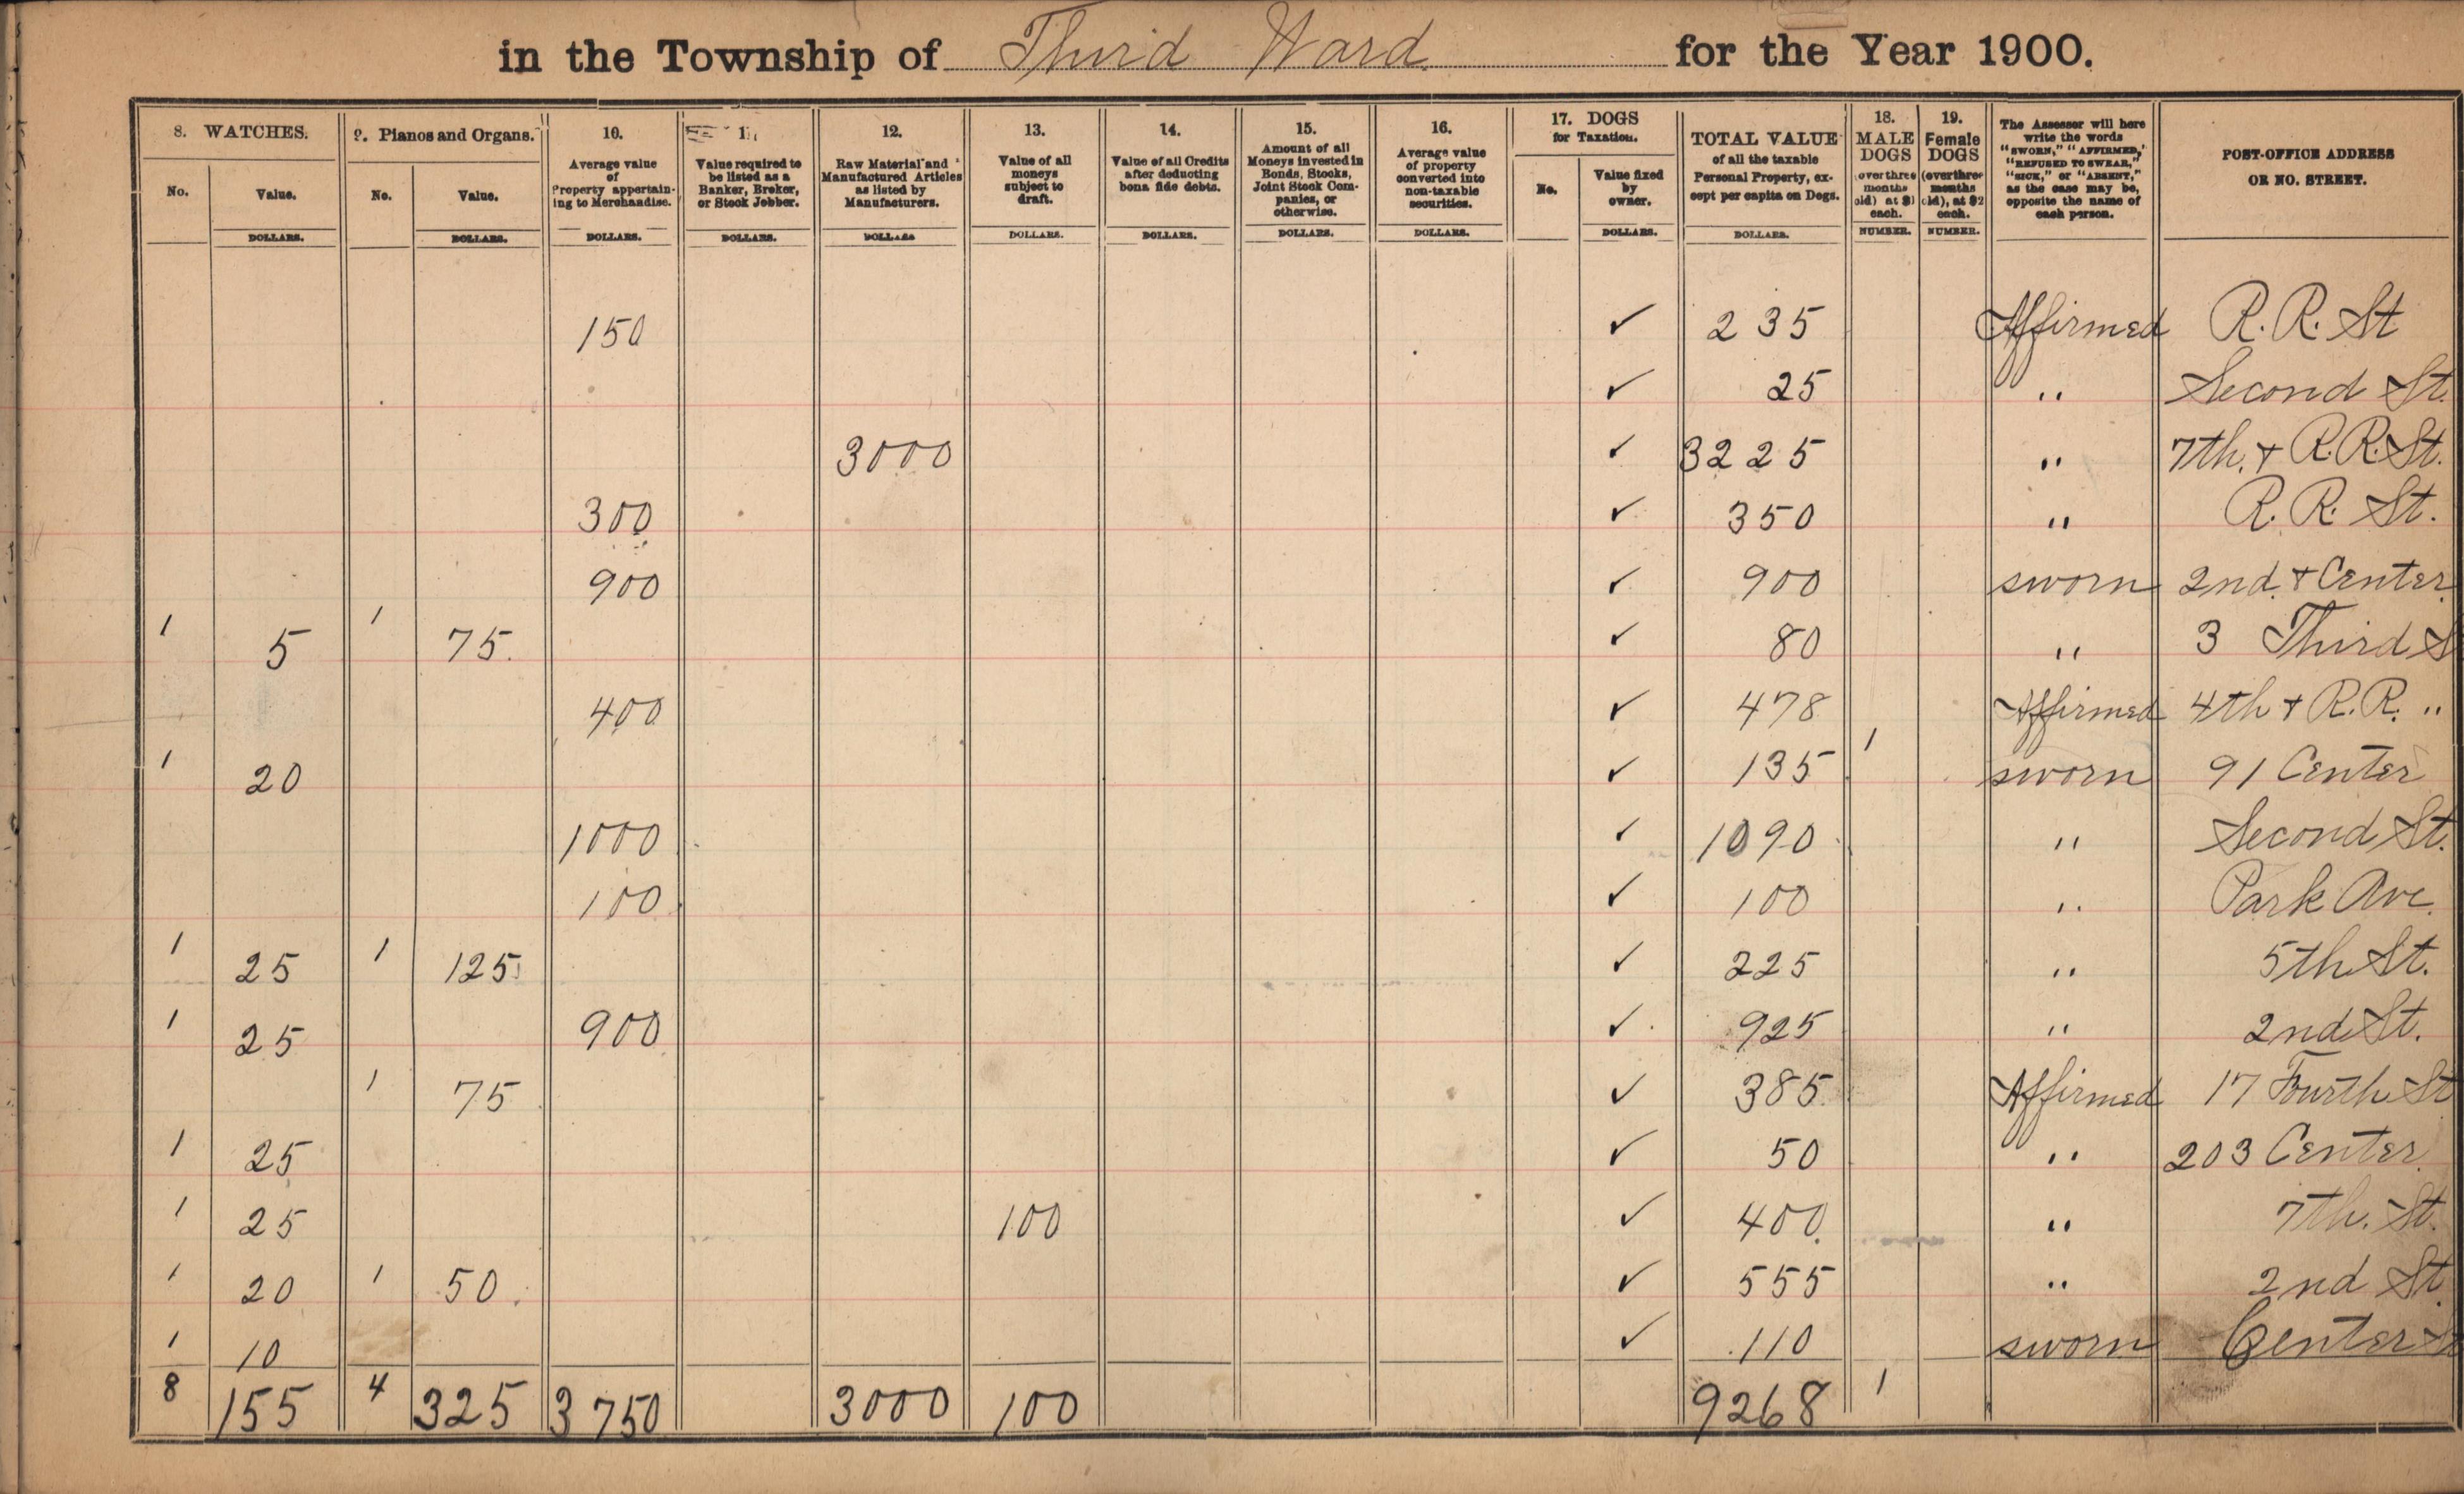 in the Township of Third Ward for the Year 1900.
8. WATCHES. 9. Pianos and Organs. 10. 11. 12. 13. 14. 15. 16. 17. DOGS for Taxation. TOTAL VALUE of all the taxable Personal Property, except per capita on Dogs. 18. MALE DOGS (over three months old) at $1 each. 19. Female DOGS (over three months old), at $2 each. The Assessor will here write the words "SWORN," "AFFIRMED," "REFUSED TO SWEAR," "SICK," or "ABSENT," as the case may be, opposite the name of each person. POST-OFFICE ADDRESS OR NO. STREET.
No. Value. No. Value. Average value of Property appertaining to Merchandise. Value required to be listed as a Banker, Broker, or Stock Jobber. Raw Material and Manufactured Articles as listed by Manufacturers. Value of all moneys subject to draft. Value of all Credits after deducting bona fide debts. Amount of all Moneys invested in Bonds, Stocks, Joint Stock Companies, or otherwise. Average value of property converted into non-taxable securities. No. Value fixed by owner.
DOLLARS. DOLLARS. DOLLARS. DOLLARS. DOLLARS DOLLARS. DOLLARS. DOLLARS. DOLLARS. DOLLARS. DOLLARS. NUMBER. NUMBER.
150 ✓ 235 Affirmed R. R. St
✓ 25 " Second St.
3000 ✓ 3225 " 7th. + R. R. St.
300 ✓ 350 " R. R. St.
900 ✓ 900 sworn 2nd. + Center
1 5 1 75. ✓ 80 " 3 Third S
400 ✓ 478 Affirmed 4th + R. R. "
1 20 ✓ 135 1 sworn 91 Center
1000 ✓ 1090 " Second St.
100 ✓ 100 " Park Ave.
1 25 1 125 ✓ 225 " 5th St.
1 25 900 ✓ 925 " 2nd St.
1 75 ✓ 385 Affirmed 17 Fourth St
1 25 ✓ 50 " 203 Center
1 25 100 ✓ 400 " 7th. St.
1 20 1 50. ✓ 555 " 2nd St.
1 10 ✓ 110 sworn Center S
8 155 4 325 3750 3000 100 9268 1